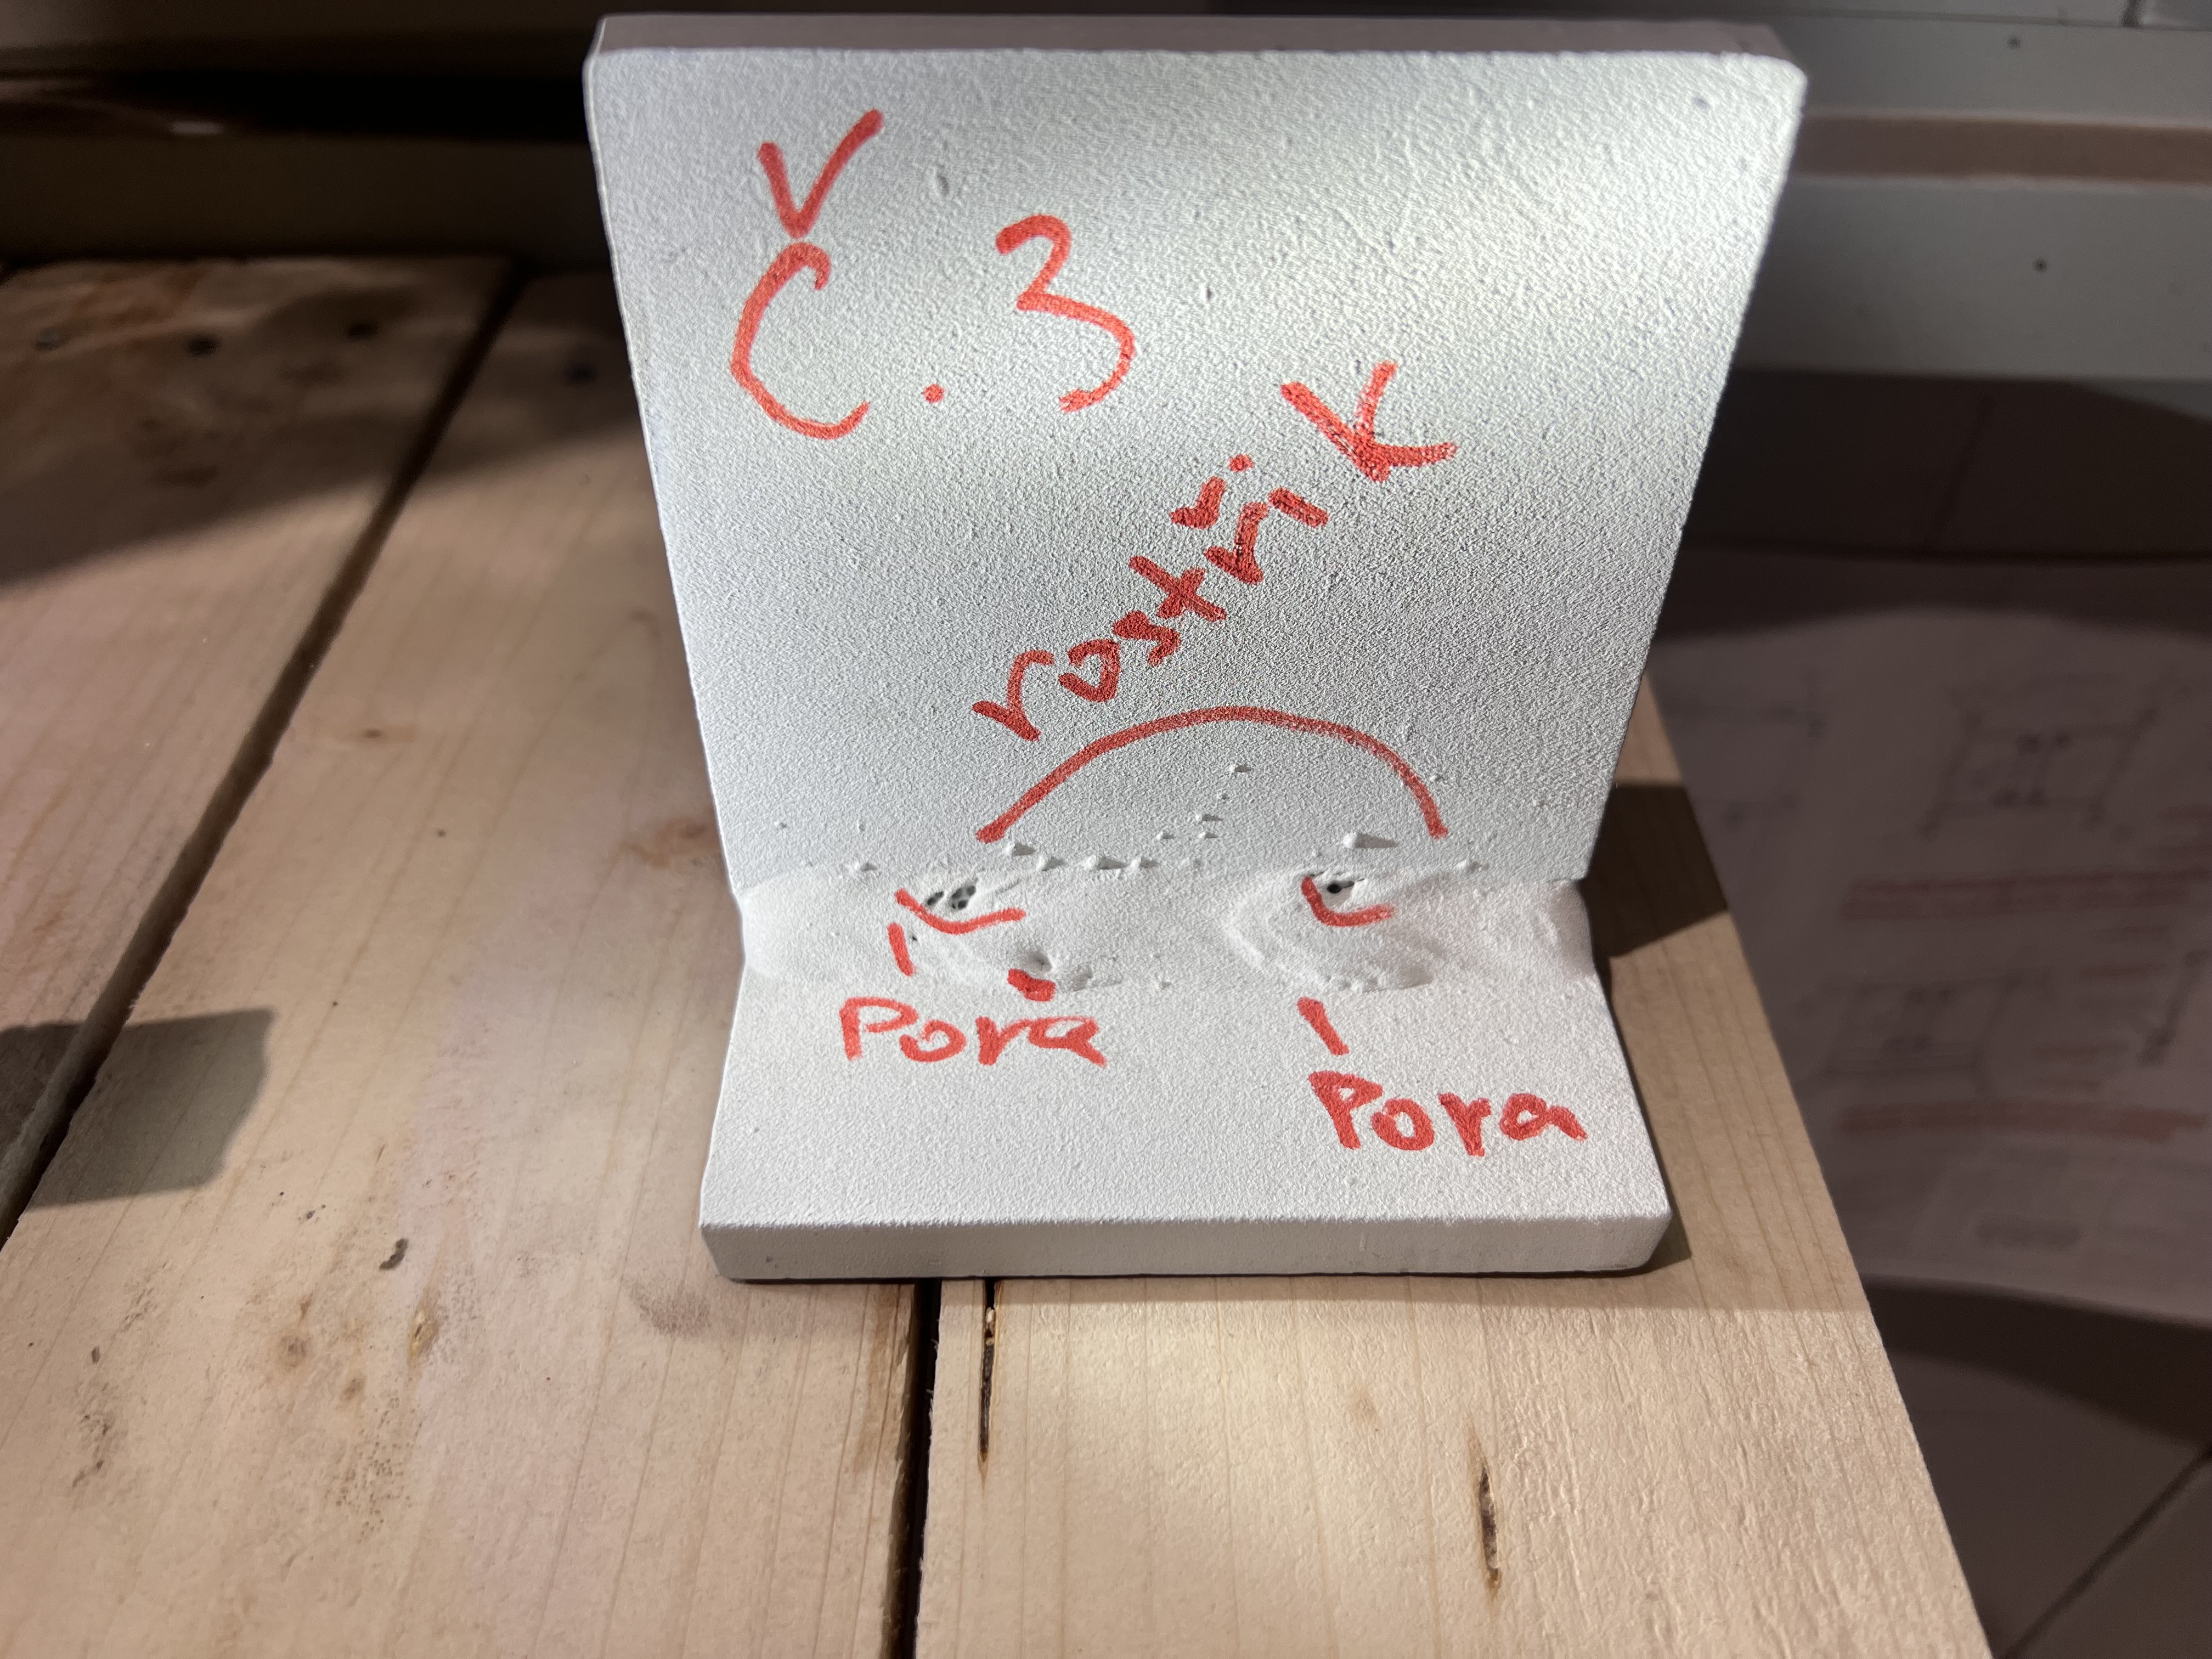 Č. 3
rostřik
Pora
Pora